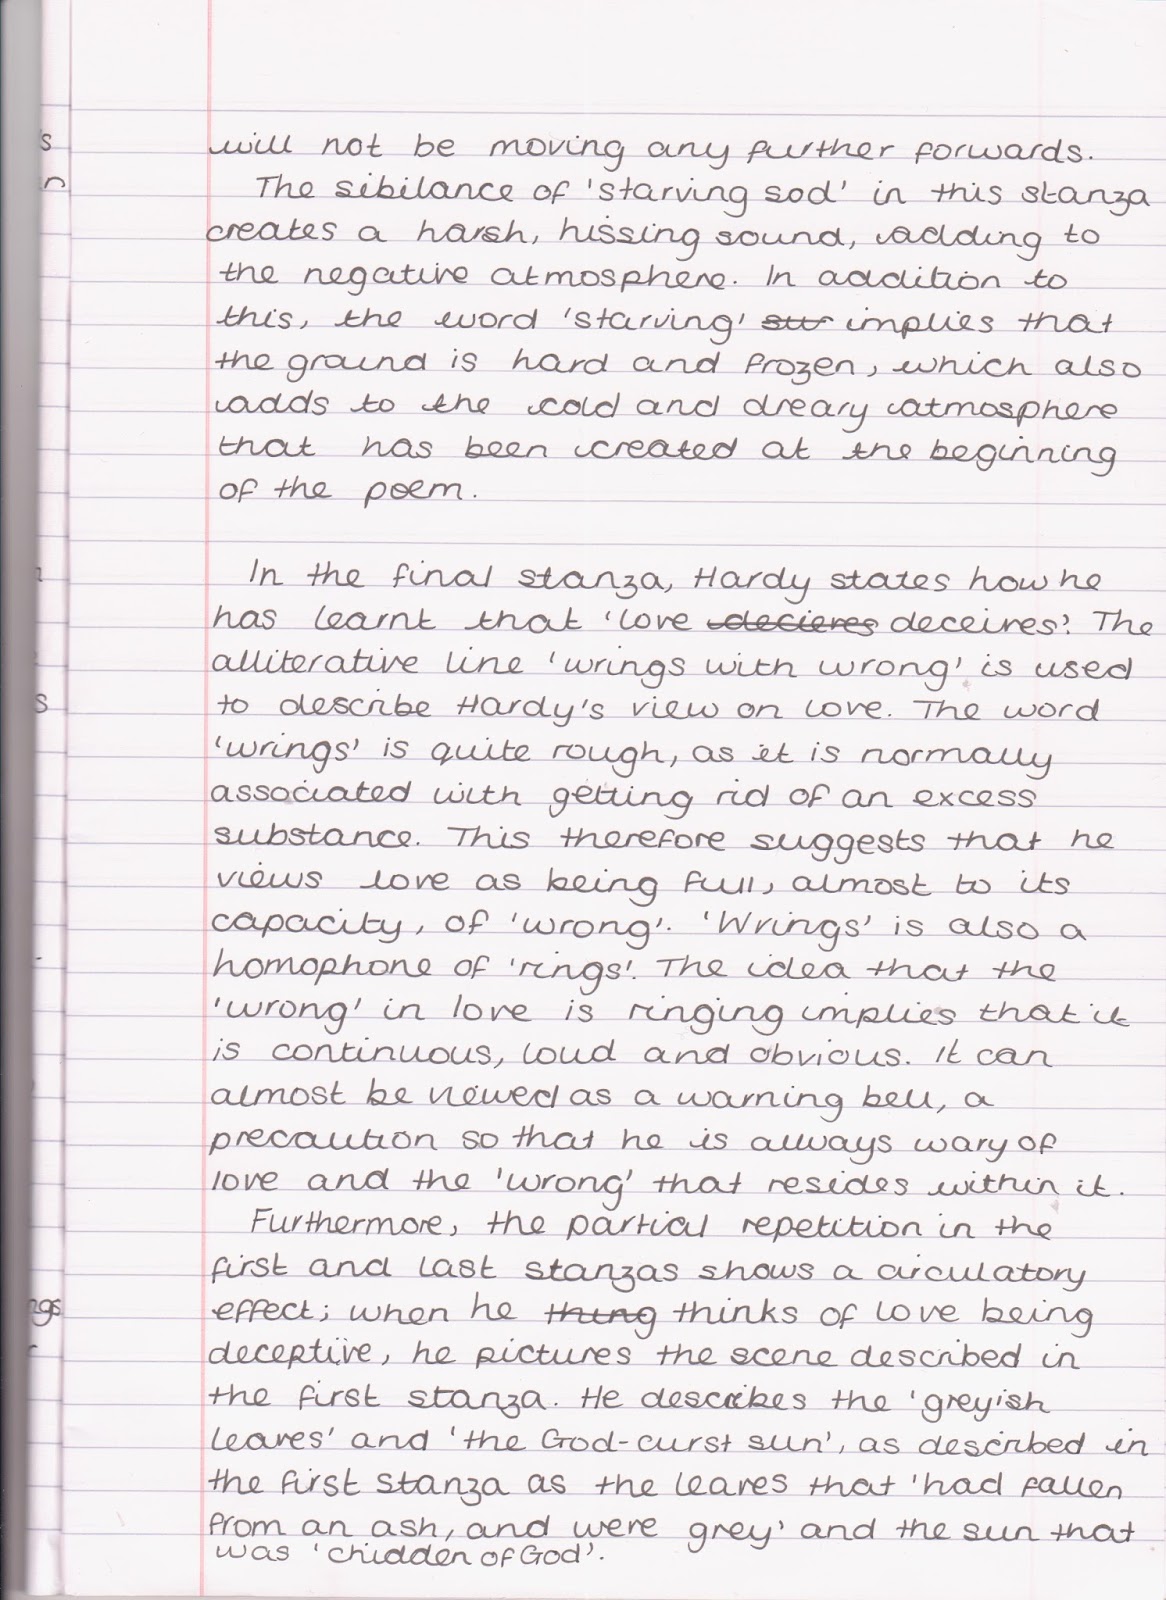 will not be moving any further forwards.
The sibilance of 'starving sod' in this stanza
creates a harsh, hissing sound, adding to
the negative atmosphere. In addition to
this, the word 'starving' implies that
the ground is hard and frozen, which also
adds to the cold and dreary atmosphere
that has been created at the beginning
of the poem.
In the final stanza, Hardy states how he
has learnt that 'love decieres deceives'. The
alliterative line 'wrings with wrong' is used
to describe Hardy's view on love. The word
'wrings' is quite rough, as it is normally
associated with getting rid of an excess
substance. This therefore suggests that he
views love as being full, almost to its
capacity, of 'wrong'. 'Wrings' is also a
homophone of 'rings'. The idea that the
'wrong' in love is ringing implies that it
is continuous, loud and obvious. It can
almost be viewed as a warning bell, a
precaution so that he is always wary of
love and the 'wrong' that resides within it.
Furthermore, the partial repetition in the
first and last stanzas shows a circulatory
effect; when he thing thinks of love being
deceptive, he pictures the scene described in
the first stanza. He describes the 'greyish
leaves' and 'the God-curst sun', as described in
the first stanza as the leaves that 'had fallen
from an ash, and were grey' and the sun that
was 'chidden of God'.
s
in
s
ngs